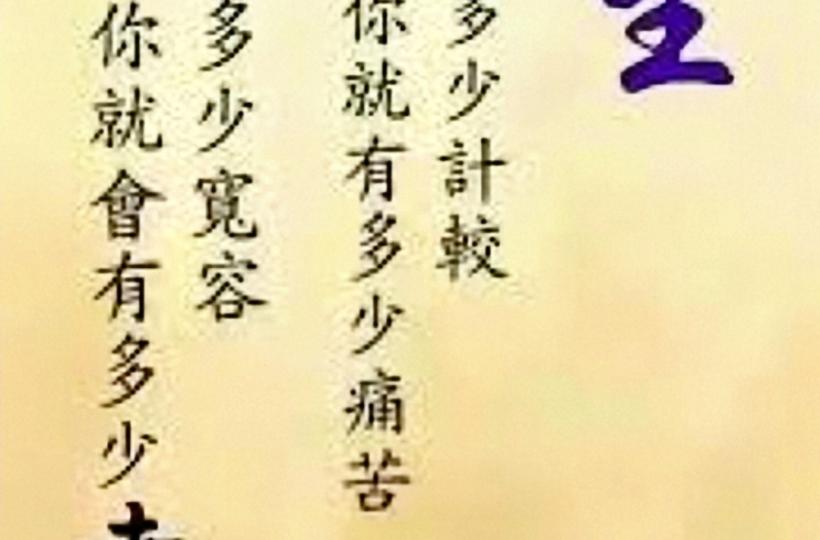 多少計較
你就有多少痛苦
多少寬容
你就會有多少